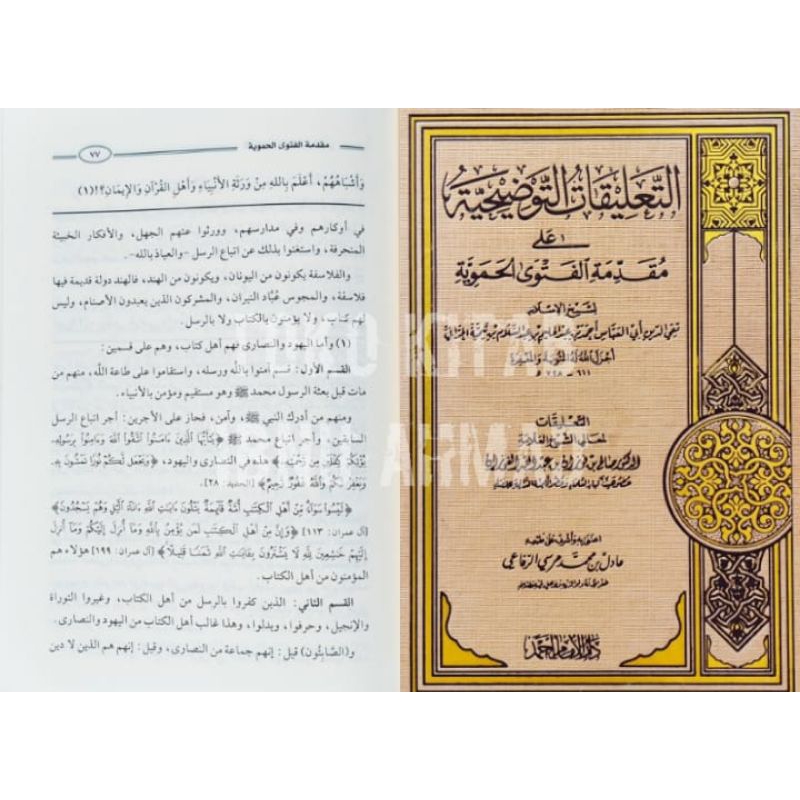 مقدمة الفتوى الحموية
٧٧
وَأَشْبَاهُهُمْ، أَعْلَمَ بِاللهِ مِنْ وَرَثَةِ الأَنْبِيَاءِ وَأَهْلِ القُرْآنِ وَالإِيمَانِ؟!(١)
في أوكارهم وفي مدارسهم، وورثوا عنهم الجهل، والأفكار الخبيثة
المنحرفة، واستغنوا بذلك عن اتباع الرسل -والعياذ بالله-.
والفلاسفة يكونون من اليونان، ويكونون من الهند، فالهند دولة قديمة فيها
فلاسفة، والمجوس عُبَّاد النيران، والمشركون الذين يعبدون الأصنام، وليس
لهم كتاب، ولا يؤمنون بالكتاب ولا بالرسل.
(١) وأما اليهود والنصارى فهم أهل كتاب، وهم على قسمين:
القسم الأول: قسم آمنوا بالله ورسله، واستقاموا على طاعة الله، منهم من
مات قبل بعثة الرسول محمد ﷺ وهو مستقيم ومؤمن بالأنبياء.
ومنهم من أدرك النبي ﷺ، وآمن، فحاز على الأجرين: أجر اتباع الرسل
السابقين، وأجر اتباع محمد ﷺ ﴿يَٰٓأَيُّهَا ٱلَّذِينَ ءَامَنُوا۟ ٱتَّقُوا۟ ٱللَّهَ وَءَامِنُوا۟ بِرَسُولِهِۦ
يُؤْتِكُمْ كِفْلَيْنِ مِن رَّحْمَتِهِۦ﴾ هذه في النصارى واليهود، ﴿وَيَجْعَل لَّكُمْ نُورًا تَمْشُونَ بِهِۦ
وَيَغْفِرْ لَكُمْ وَٱللَّهُ غَفُورٌ رَّحِيمٌ﴾ [الحديد: ٢٨].
﴿لَيْسُوا۟ سَوَآءً مِّنْ أَهْلِ ٱلْكِتَٰبِ أُمَّةٌ قَآئِمَةٌ يَتْلُونَ ءَايَٰتِ ٱللَّهِ ءَانَآءَ ٱلَّيْلِ وَهُمْ يَسْجُدُونَ﴾
[آل عمران: ١١٣] ﴿وَإِنَّ مِنْ أَهْلِ ٱلْكِتَٰبِ لَمَن يُؤْمِنُ بِٱللَّهِ وَمَآ أُنزِلَ إِلَيْكُمْ وَمَآ أُنزِلَ
إِلَيْهِمْ خَٰشِعِينَ لِلَّهِ لَا يَشْتَرُونَ بِـَٔايَٰتِ ٱللَّهِ ثَمَنًا قَلِيلًا﴾ [آل عمران: ١٩٩] هؤلاء هم
المؤمنون من أهل الكتاب.
القسم الثاني: الذين كفروا بالرسل من أهل الكتاب، وغيروا التوراة
والإنجيل، وحرفوا، وبدلوا، وهذا غالب أهل الكتاب من اليهود والنصارى.
و(الصَّابِئُون) قيل: إنهم جماعة من النصارى، وقيل: إنهم هم الذين لا دين
التَّعليقَاتُ التَّوضيحيَّة
على
مُقدِّمَةِ الفَتوَى الحَمَويَّة
لشيخ الإسلام
تقي الدين أبي العباس أحمد بن عبد الحليم بن عبد السلام بن تيمية الحراني
أجزل الله له المثوبة والمغفرة
٦٦١ - ٧٢٨ هـ
التعليقات
لمعالي الشيخ العلامة
الدكتور صالح بن فوزان بن عبد الله الفوزان
اعتنى به وأشرف على طبعه
عادل بن محمد مرسي الرفاعي
دار الإمام أحمد
TOKO KITAB
AHMAD